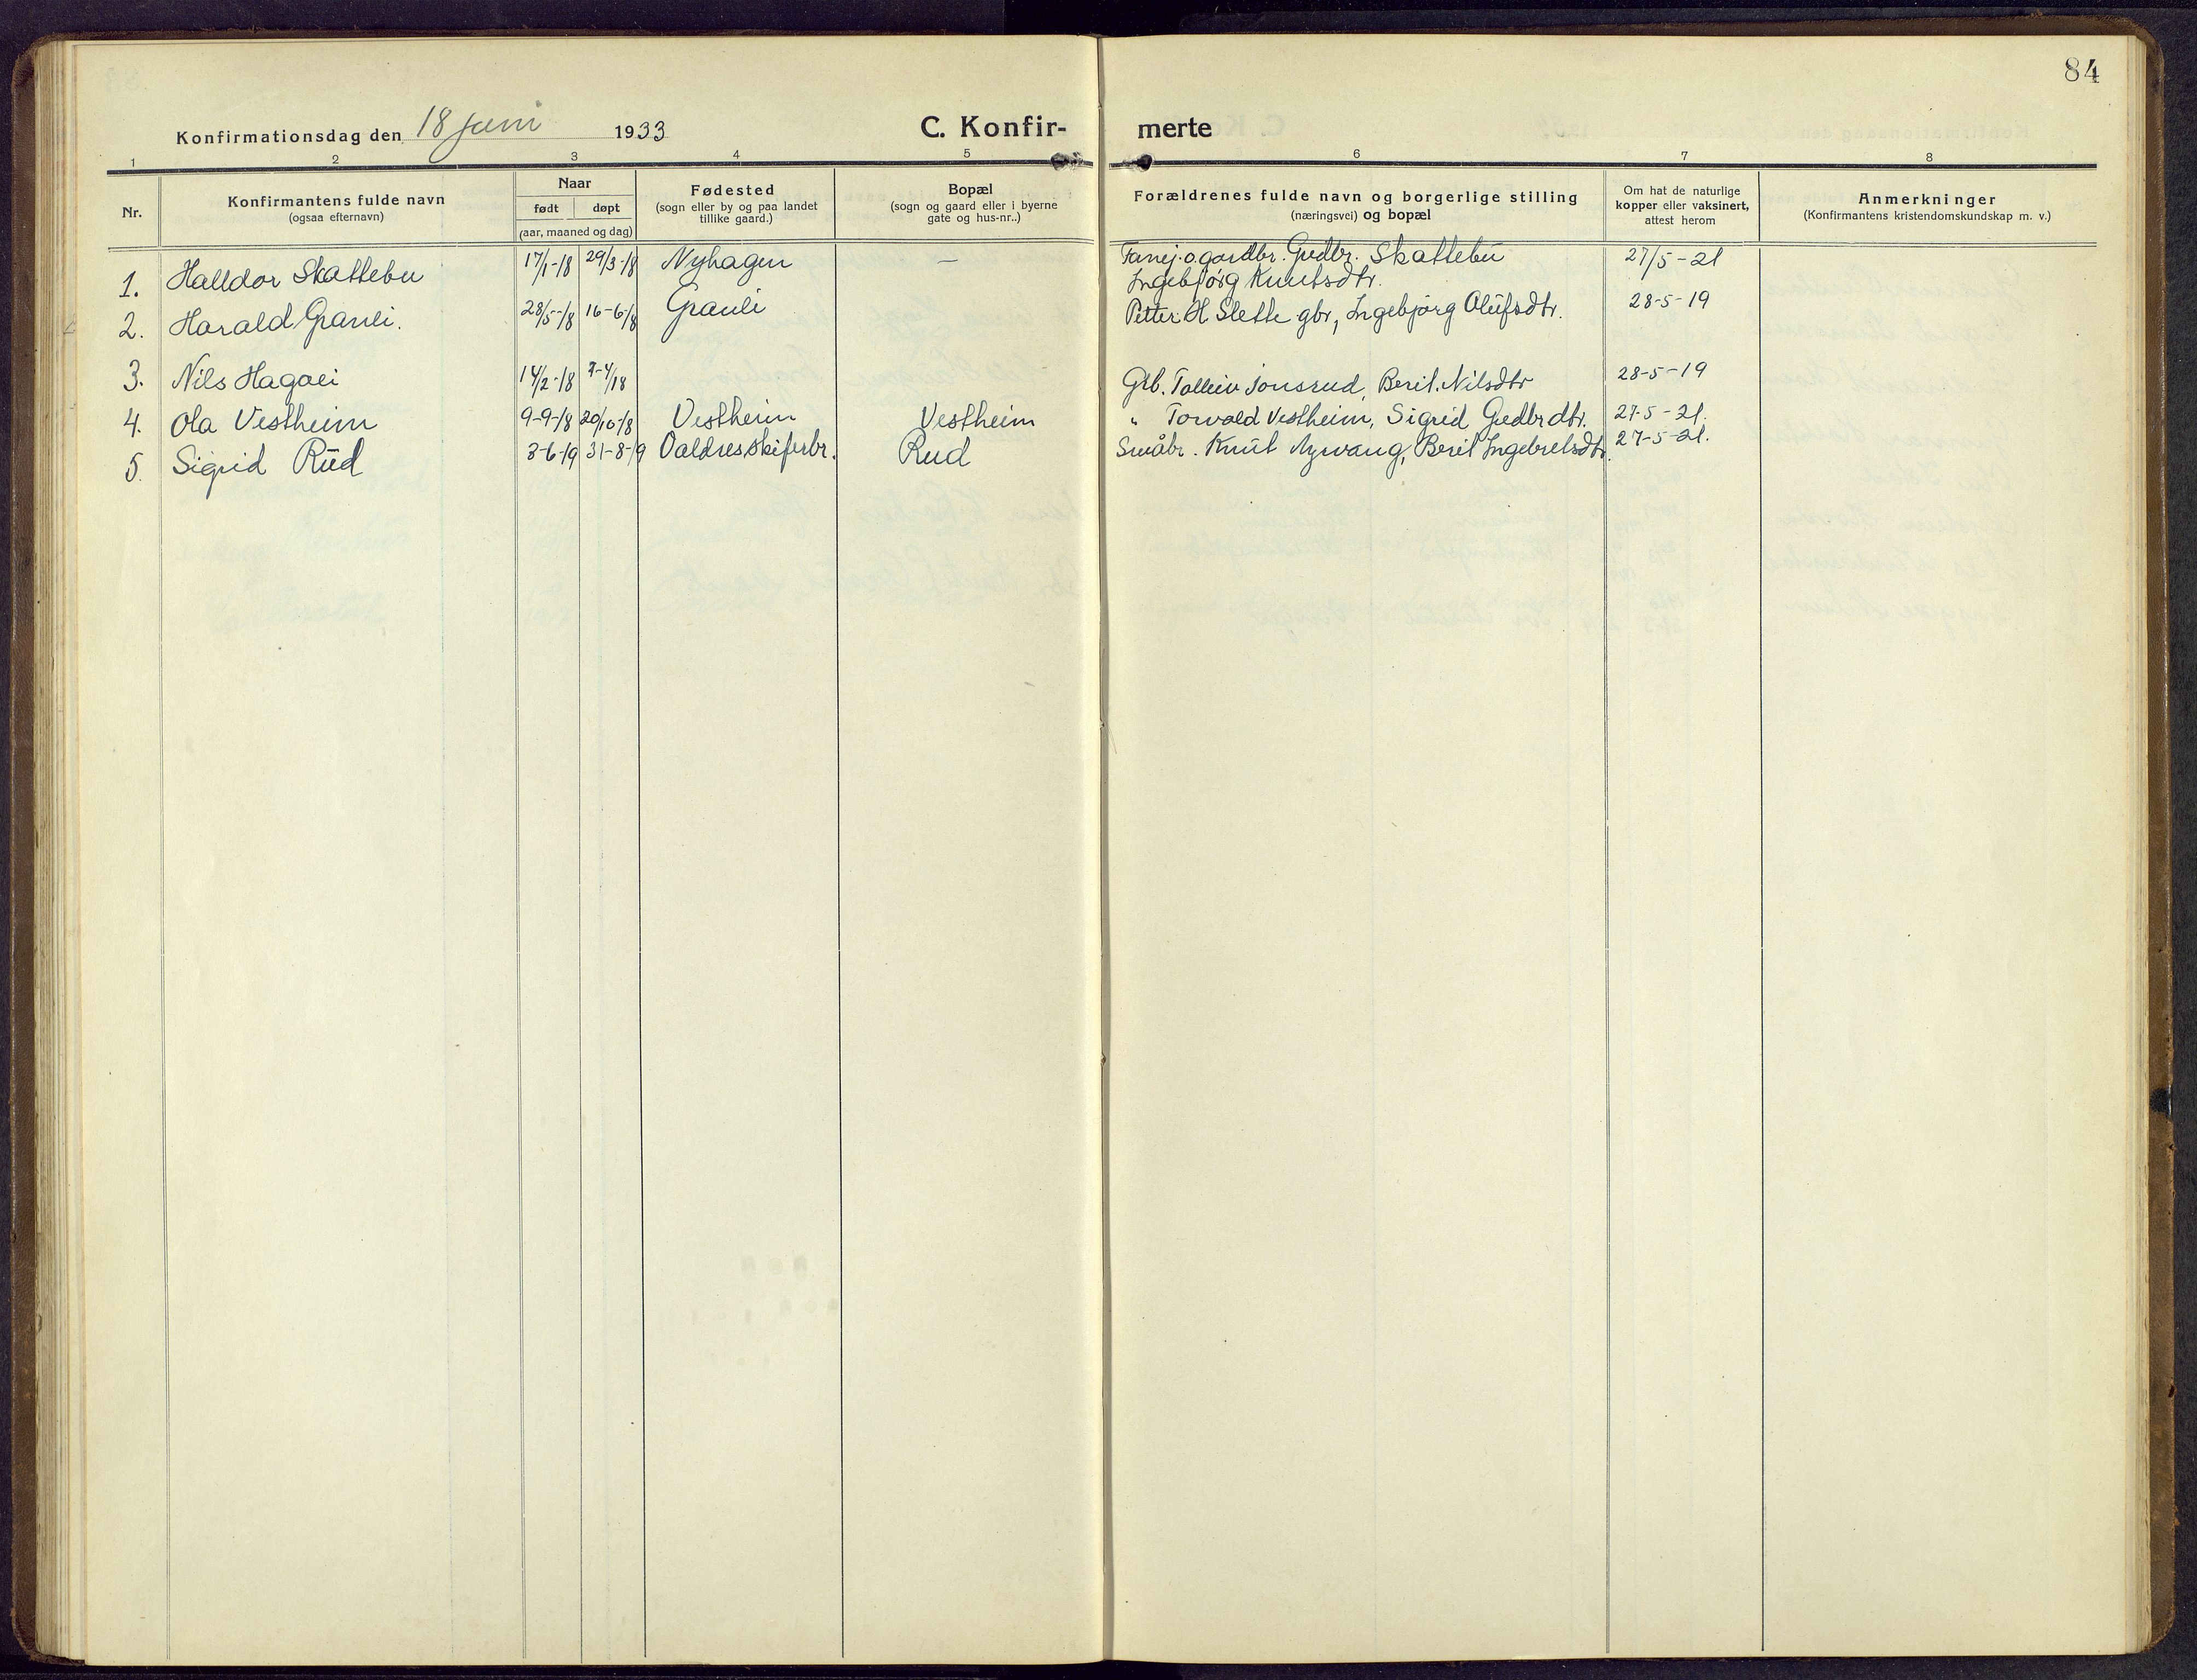 84
Konfirmationsdag den 18 juni 1933
C. Konfir-
merte
1 2 3 4 5 6 7 8
Nr.
Konfirmantens fulde navn
(ogsaa efternavn)
Naar
født døpt
(aar, maaned og dag)
Fødested
(sogn eller by og paa landet
tillike gaard.)
Bopæl
(sogn og gaard eller i byerne
gate og hus-nr..)
Forældrenes fulde navn og borgerlige stilling
(næringsvei) og bopæl
Om hat de naturlige
kopper eller vaksinert,
attest herom
Anmerkninger
(Konfirmantens kristendomskundskap m. v.)
1. Halldor Skattebu 17/1-18 29/3-18 Nyhagen — gardbr. Gudbr. Skattebu 27/5-21
Ingebjørg Knutsdtr.
2. Harald Granli. 28/5-18 16-6-18 Granli Petter H Slette gbr, Ingebjørg Olufsdtr. 28-5-19
3. Nils Hagali 14/2-18 7-4/18 Grb. Tolleiv Jonsrud, Berit Nilsdtr 28-5-19
4. Ola Vestheim 9-9-18 20/10-18 Vestheim Vestheim " Torvald Vestheim, Sigrid Gudbrdtr. 27-5-21.
5. Sigrid Rud 3-6-19 31-8-19 Valdres skiferbr. Rud Småbr. Knut Nyvang, Berit Ingebretsdtr. 27-5-21.